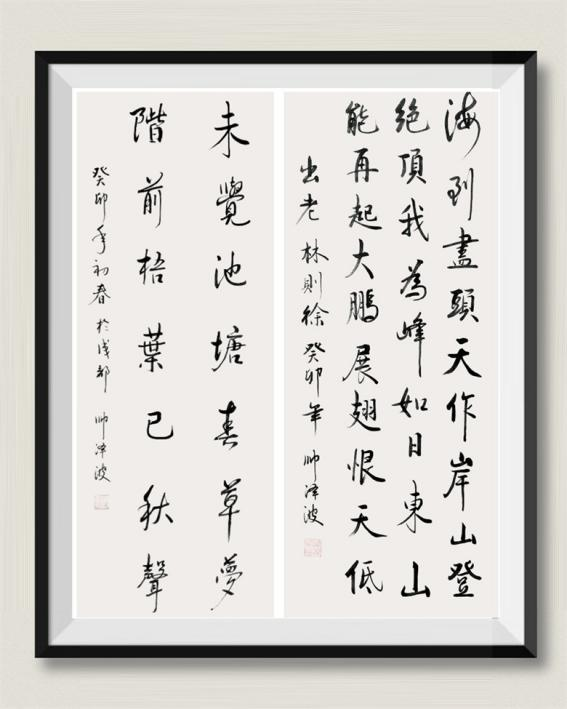 海到盡頭天作岸山登
絕頂我為峰如日東山
能再起大鵬展翅恨天低
出老林則徐癸卯年帥泽波
未覺池塘春草夢
階前梧葉已秋聲
癸卯年初春於成都帥泽波